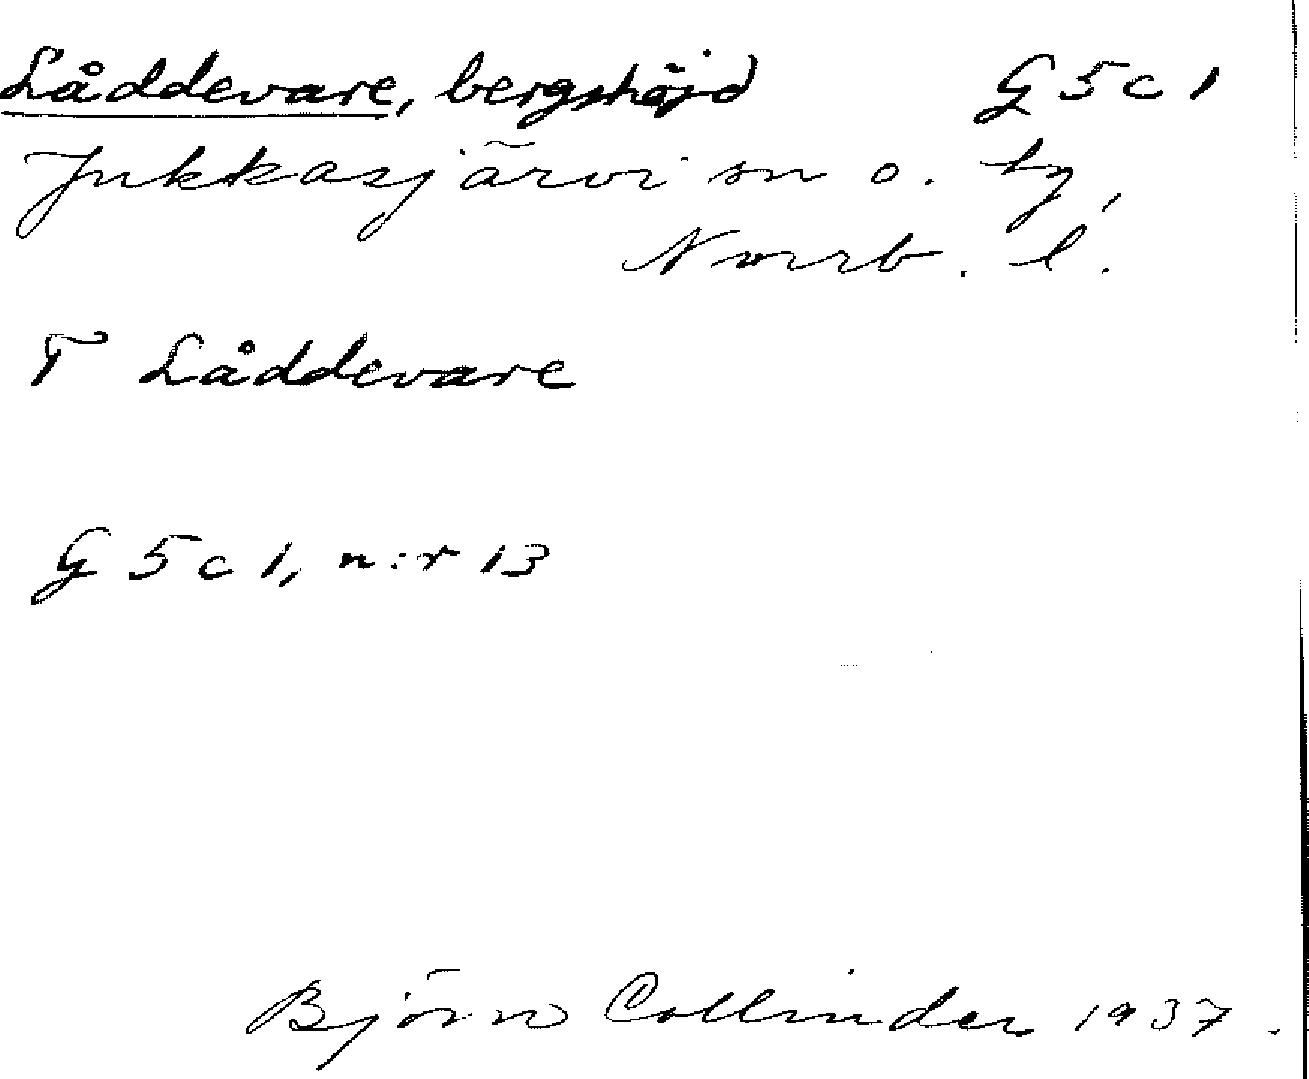 Låddevare, bergshöjd G 5 c 1
Jukkasjärvi sn o. ty,
Norrb. l.
T Låddevare
G 5 c 1, n:r 13
Björn Collinder 1937.